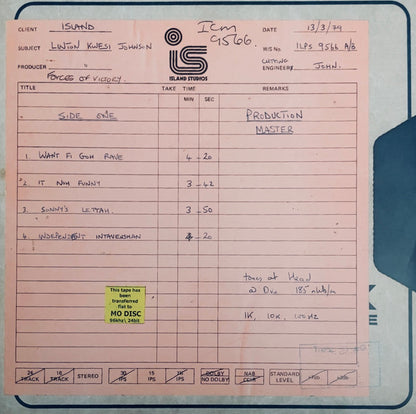 CLIENT ISLAND
ICM 9566
DATE 13/3/79
SUBJECT LINTON KWESI JOHNSON
W/S No ILPS 9566 A/B
PRODUCER "
ISLAND STUDIOS
CUTTING ENGINEER JOHN.
FORCES OF VICTORY.
TITLE TAKE TIME REMARKS
MIN SEC
SIDE ONE
PRODUCTION MASTER
1. WANT FI GOH RAVE 4 - 20
2. IT NOH FUNNY 3 - 42
3. SONNY'S LETTAH. 3 - 50
4. INDEPENDENT INTAVENSHAN 4 - 20
tones at Head
@ 0vu 185 nWb/m
1K, 10K, 100HZ
This tape has
been
transferred
flat to
MO DISC
96khz\ 24bit
24 TRACK
16 TRACK
STEREO
30 IPS
15 IPS
7½ IPS
DOLBY
NO DOLBY
NAB
CCIR
STANDARD LEVEL